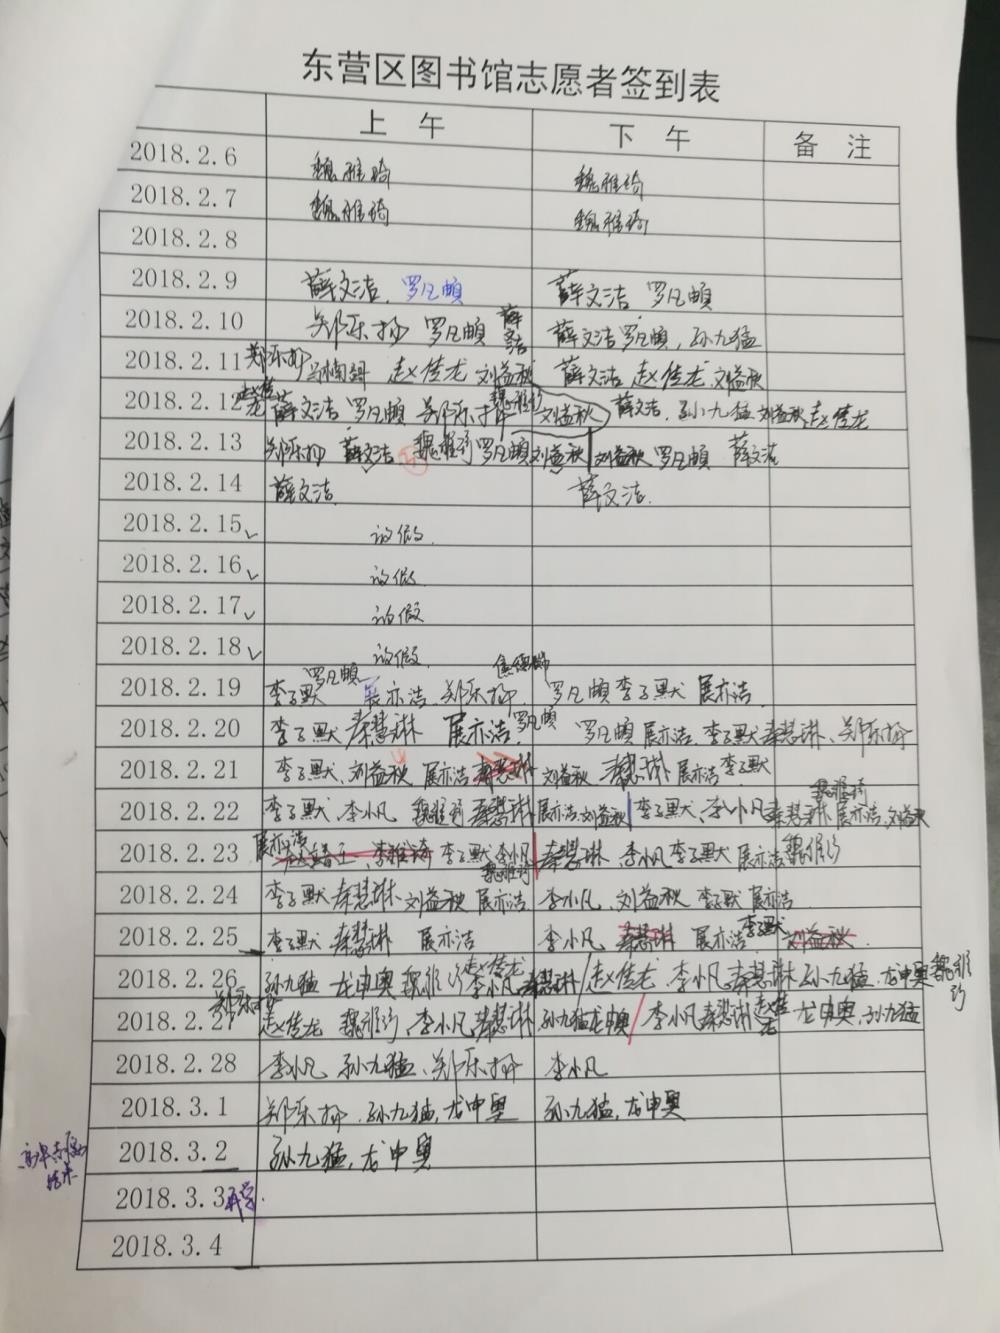 东营区图书馆志愿者签到表
上 午 下 午 备 注
2018.2.6 魏雅琦 魏雅琦
2018.2.7 魏雅琦 魏雅琦
2018.2.8
2018.2.9 薛文洁、罗凡頔 薛文洁 罗凡頔
2018.2.10 郑乐扬 罗凡頔 薛文洁 薛文洁 罗凡頔,孙九猛
2018.2.11 郑乐扬 赵佳龙 刘益秋 薛文洁 赵佳龙、刘益秋
2018.2.12 赵佳龙 薛文洁 罗凡頔 郑乐扬 刘益秋 薛文洁、孙九猛 刘益秋 赵佳龙
2018.2.13 郑乐扬 薛文洁 罗凡頔 刘益秋 刘益秋 罗凡頔 薛文洁
2018.2.14 薛文洁. 薛文洁.
2018.2.15 放假.
2018.2.16 放假
2018.2.17 放假
2018.2.18 放假.
罗凡頔
2018.2.19 李子默 展亦洁、郑乐扬 罗凡頔 李子默 展亦洁
2018.2.20 李子默 秦慧琳 展亦洁 罗凡頔 罗凡頔 展亦洁、李子默 秦慧琳、郑乐扬
2018.2.21 李子默、刘益秋 展亦洁 秦慧琳 刘益秋 秦慧琳 展亦洁 李子默
2018.2.22 李子默、李小凡 秦慧琳 展亦洁、刘益秋 李子默、李小凡 秦慧琳 展亦洁、刘益秋
2018.2.23 展亦洁 李子默 李小凡 秦慧琳、李小凡 李子默 展亦洁
2018.2.24 李子默 秦慧琳 刘益秋 展亦洁 李小凡、刘益秋 李子默 展亦洁
2018.2.25 李子默 秦慧琳 展亦洁 李小凡 秦慧琳 展亦洁 李子默 刘益秋
2018.2.26 孙九猛 龙申奥 李小凡 赵佳龙 秦慧琳 赵佳龙、李小凡 秦慧琳 孙九猛、龙申奥
2018.2.27 郑乐扬 赵佳龙 李小凡 秦慧琳 孙九猛 龙申奥 李小凡 秦慧琳 赵佳龙 龙申奥、孙九猛
2018.2.28 李小凡 孙九猛、郑乐扬 李小凡
2018.3.1 郑乐扬、孙九猛,龙申奥 孙九猛,龙申奥
2018.3.2 孙九猛,龙申奥
2018.3.3 开学.
2018.3.4